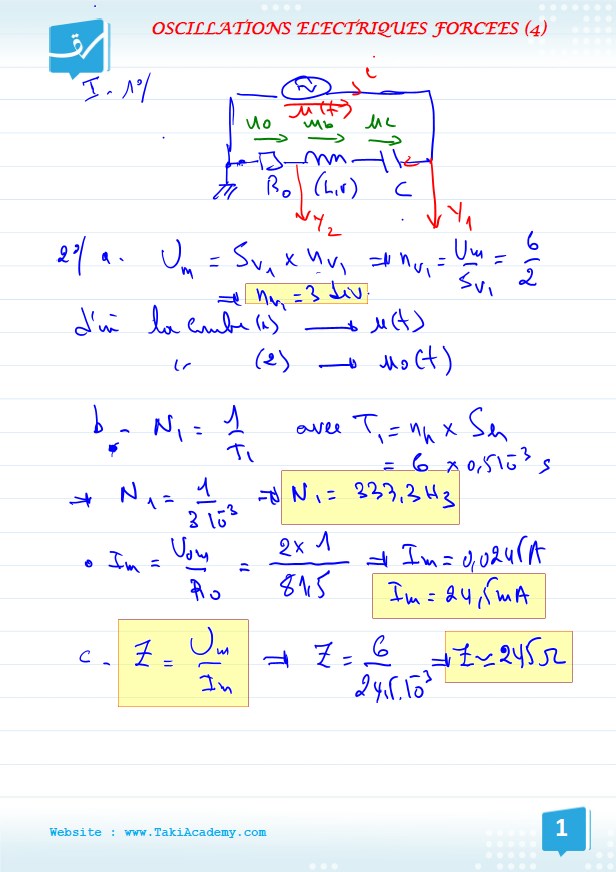 OSCILLATIONS ELECTRIQUES FORCEES (4)
I - 1°/
N
i
u(t)
u0 ub uc
R0 (L,r) C
Y2 Y1
2°/ a. Um = Sv1 × nv1 ⇒ nv1 = Um/Sv1 = 6/2
⇒ nv1 = 3 div.
d'où la courbe (1) → u(t)
" (2) → u0(t)
b - N1 = 1/T1 avec T1 = nh × Sh
= 6 × 0,5 10^-3 s
→ N1 = 1/3 10^-3 ⇒ N1 = 333,3 Hz
• Im = U0m/R0 = 2×1/81,5 ⇒ Im = 0,0245 A
Im = 24,5 mA
c - Z = Um/Im ⇒ Z = 6/24,5.10^-3 ⇒ Z ≃ 245 Ω
Website : www.TakiAcademy.com
1